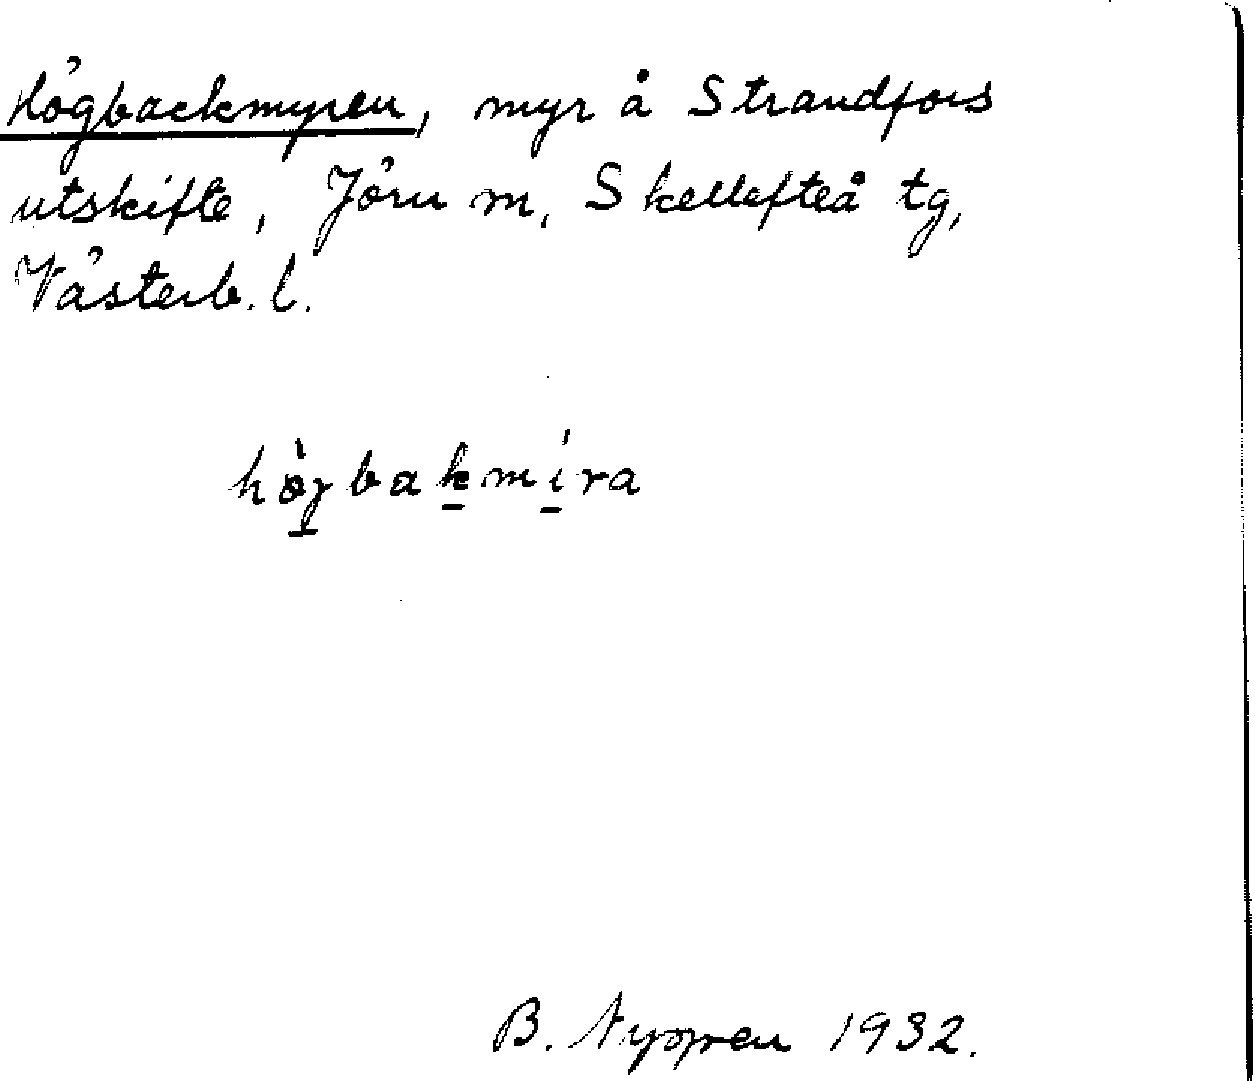 Högbackmyren, myr å Strandfors
utskifte, Jörn m, Skellefteå tg,
Västerb. l.
hògbakmíra
B. Nyppren 1932.